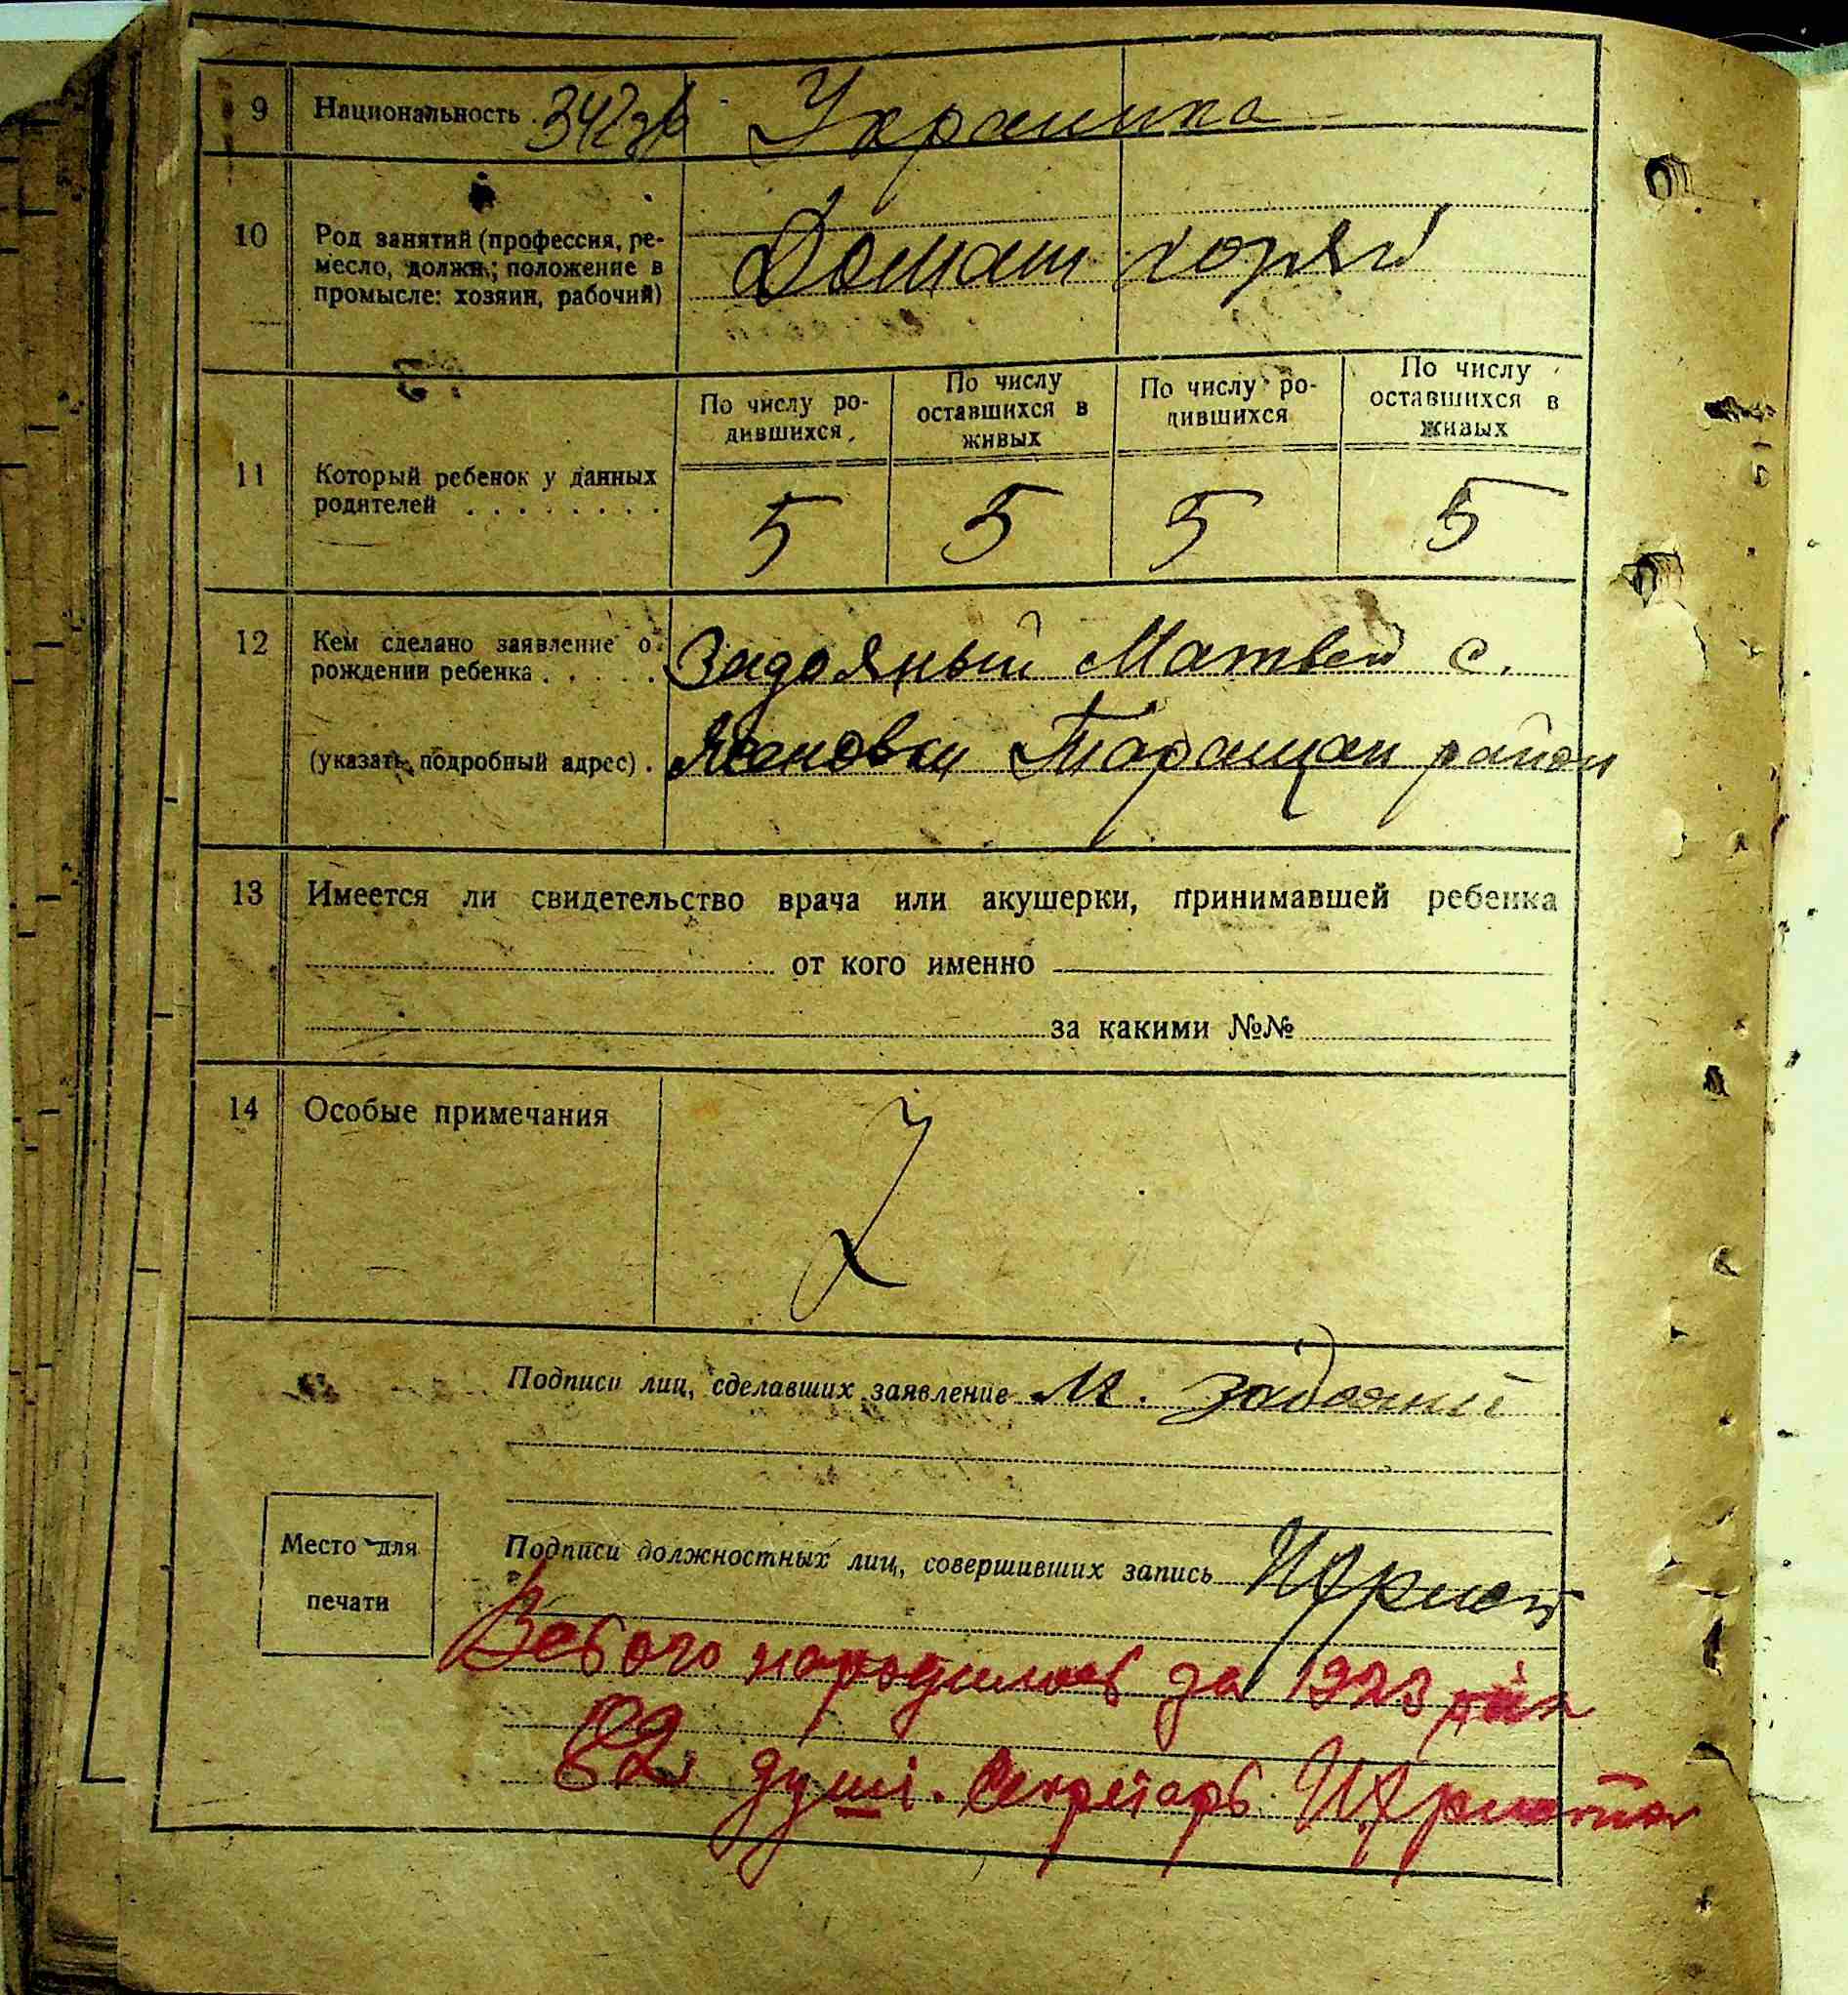 9 Национальность Украинка
10 Род занятий (профессия, ре-
месло, должн.; положение в
промысле: хозяин, рабочий)
Домаш хозяй
11 Который ребенок у данных
родителей . . . . . . . .
По числу ро-
дившихся
По числу
оставшихся в
живых
По числу ро-
дившихся
По числу
оставшихся в
живых
5 5 5 5
12 Кем сделано заявление о
рождении ребенка . . . . .
Задояный Матвей с.
(указать подробный адрес) .
Таращан район
13 Имеется ли свидетельство врача или акушерки, принимавшей ребенка
от кого именно
за какими №№
14 Особые примечания
Подписи лиц, сделавших заявление М. Задояний
Место для
печати
Подписи должностных лиц, совершивших запись
Всього народилось за 1923 рік
82 душі. Секретарь